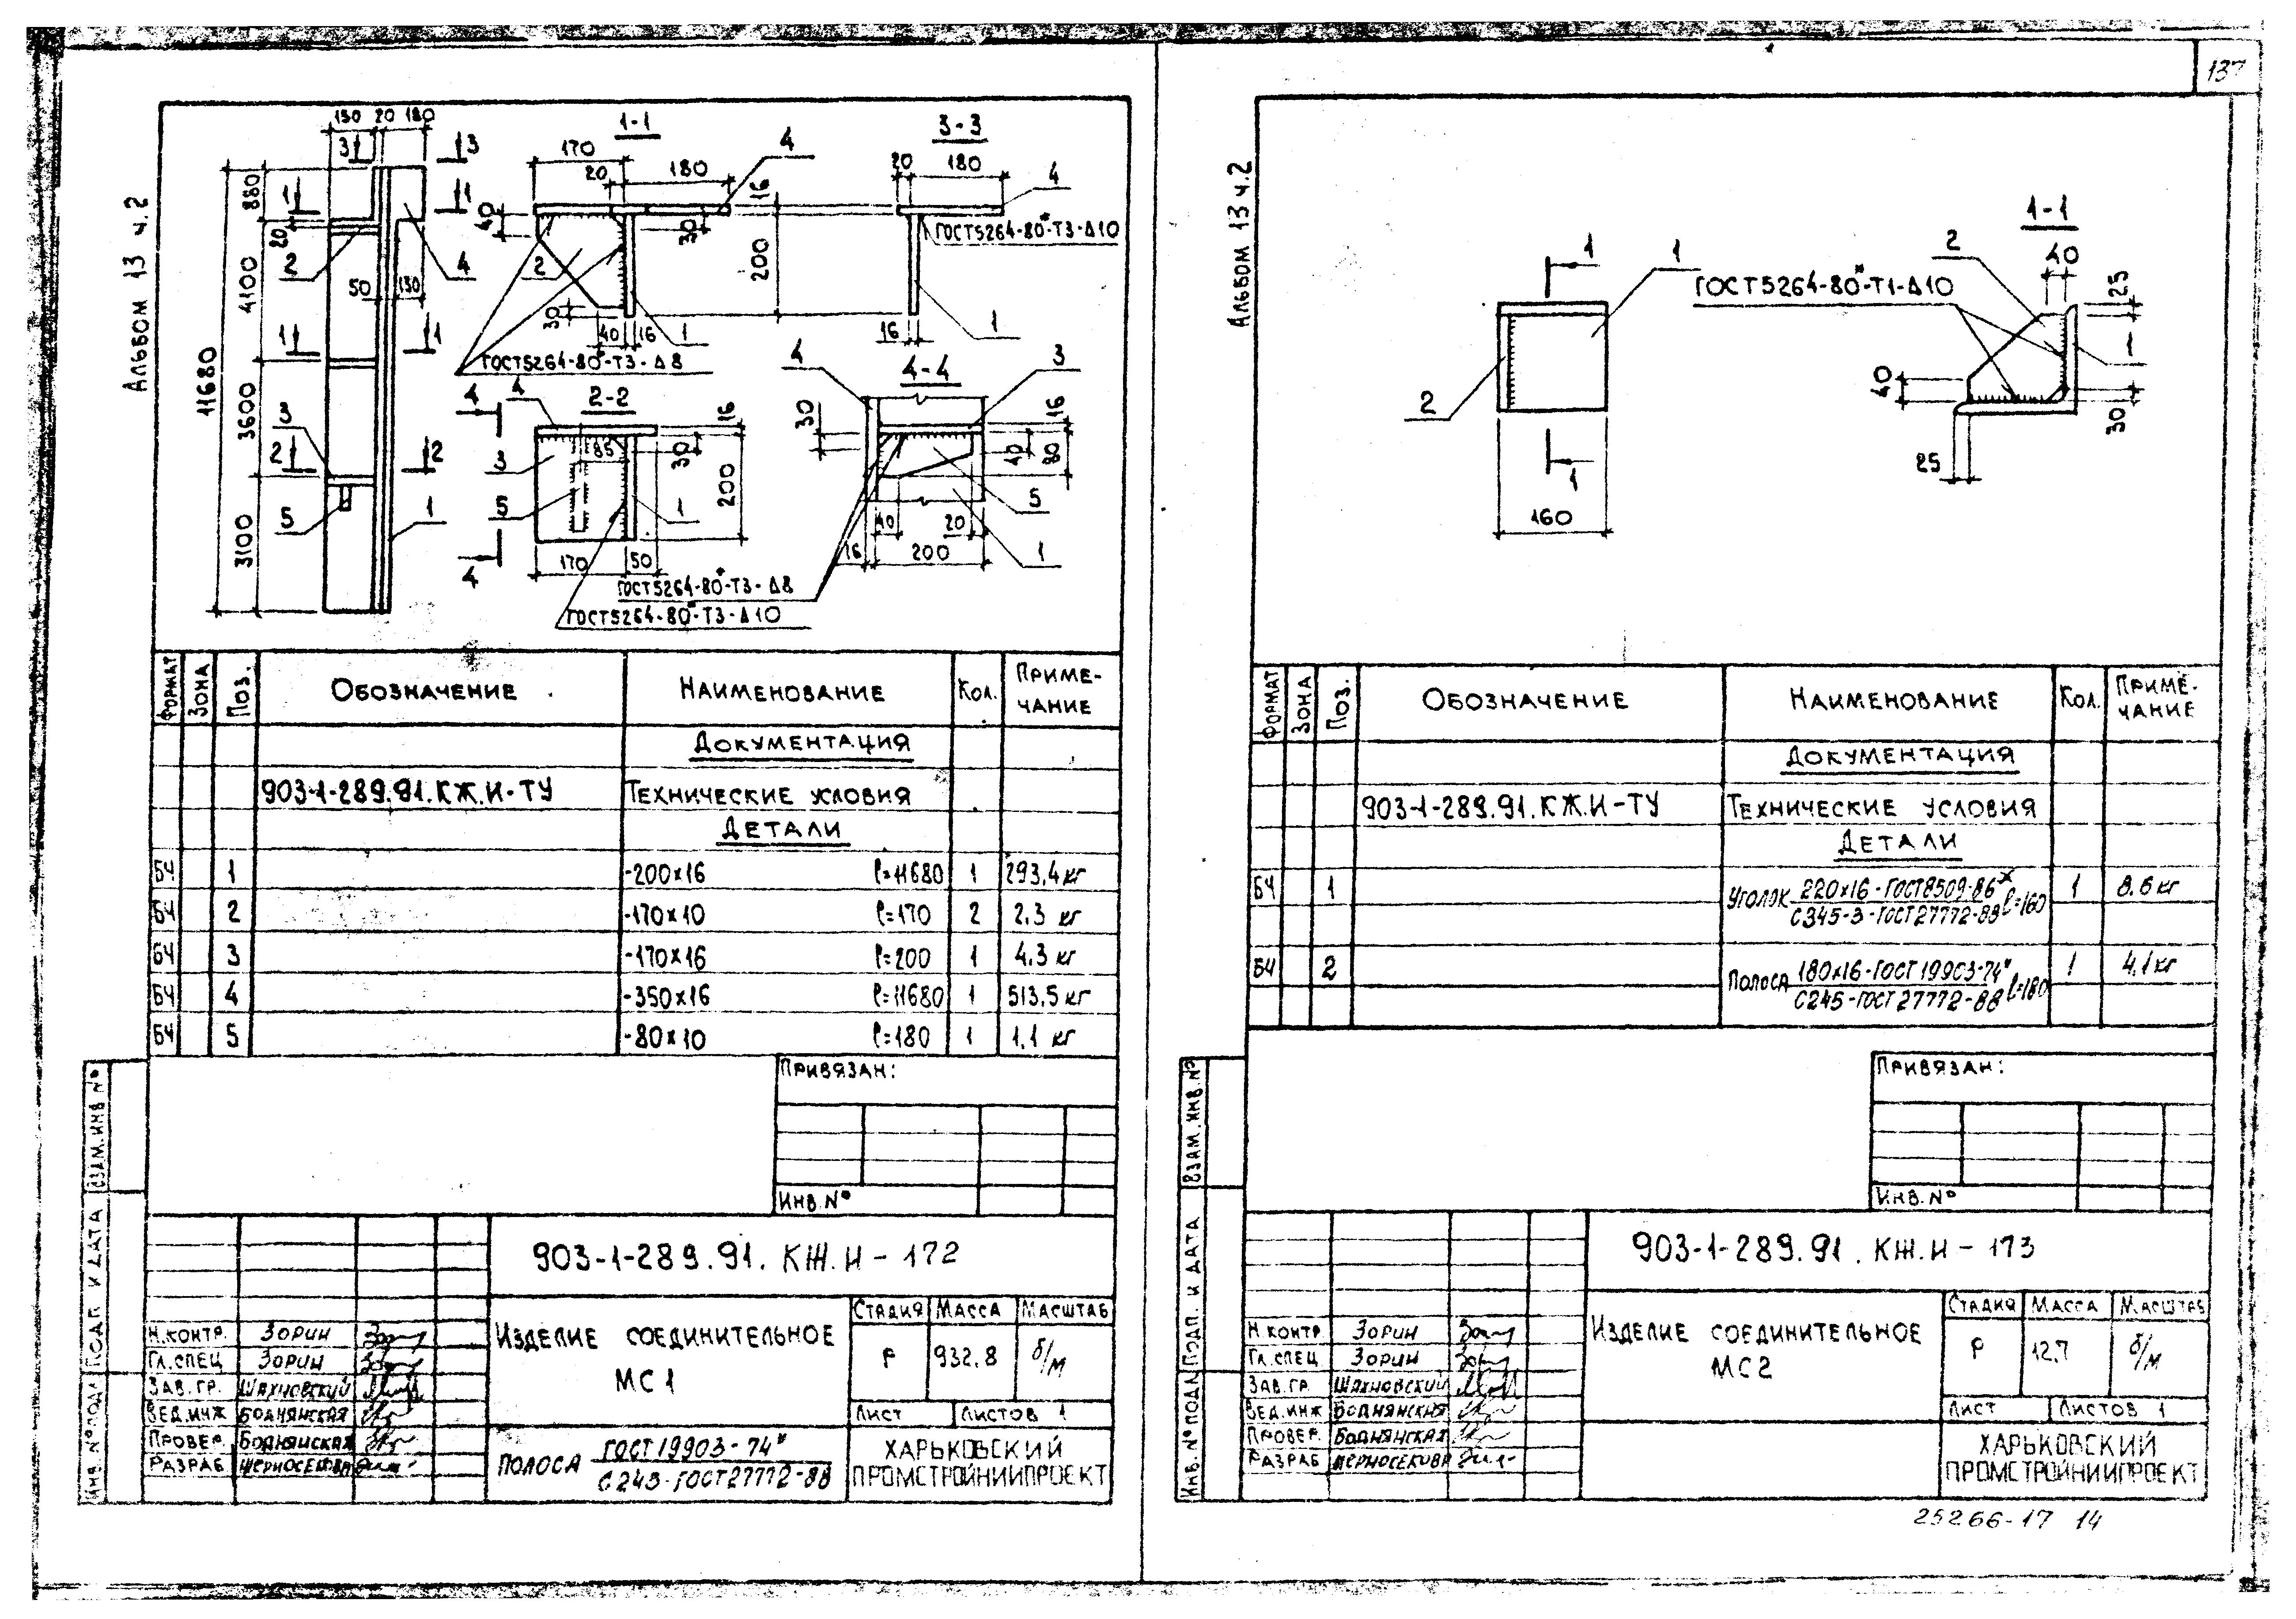 137
Альбом 13 ч.2
150 20 180
3 3
1 1
880
20
2
4
4100
50 130
1 1
11680
3600
3
2 2
5
1
3100
1-1
170
20 180
4
16
40
2
30
200
30
40 16
1
ГОСТ5264-80*-Т3-Δ8
3-3
20 180
4
ГОСТ5264-80*-Т3-Δ10
16
1
2-2
4
4
16
85
3
30
200
5
1
4
170 50
ГОСТ5264-80*-Т3-Δ8
ГОСТ5264-80*-Т3-Δ10
4-4
4
3
30
16
40 80
5
40 20
16 200
1
Формат Зона Поз. Обозначение Наименование Кол. Примечание
Документация
903-1-289.91.КЖ.И-ТУ Технические условия
Детали
БЧ 1 -200х16 ℓ=11680 1 293,4 кг
БЧ 2 -170х10 ℓ=170 2 2,3 кг
БЧ 3 -170х16 ℓ=200 1 4.3 кг
БЧ 4 -350х16 ℓ=11680 1 513,5 кг
БЧ 5 -80х10 ℓ=180 1 1,1 кг
Привязан:
Инв.№
Взам.инв.№
Подп. и дата
Инв.№подл
903-1-289.91. КЖ.И-172
Изделие соединительное
МС1
Стадия Масса Масштаб
Р 932,8 б/м
Лист Листов 1
Н.контр. Зорин
Гл.спец Зорин
Зав.гр. Шахновский
Вед.инж Боднянская
Провер. Боднянская
Разраб Черносекова
Полоса ГОСТ19903-74*
С245-ГОСТ27772-88
Харьковский
Промстройниипроект
Альбом 13 ч.2
1
1
2
1
160
1-1
2
40
25
ГОСТ5264-80*-Т1-Δ10
1
40
30
25
Формат Зона Поз. Обозначение Наименование Кол. Примечание
Документация
903-1-289.91.КЖ.И-ТУ Технические условия
Детали
БЧ 1 Уголок 220х16-ГОСТ8509-86* ℓ=160 1 8.6 кг
С345-3-ГОСТ27772-88
БЧ 2 Полоса 180х16-ГОСТ19903-74* ℓ=180 1 4,1 кг
С245-ГОСТ27772-88
Привязан:
Инв.№
Взам.инв.№
Подп. и дата
Инв.№подл
903-1-289.91. КЖ.И-173
Изделие соединительное
МС2
Стадия Масса Масштаб
Р 12,7 б/м
Лист Листов 1
Н.контр Зорин
Гл.спец Зорин
Зав.гр. Шахновский
Вед.инж Боднянская
Провер. Боднянская
Разраб Черносекова
Харьковский
Промстройниипроект
25266-17 14